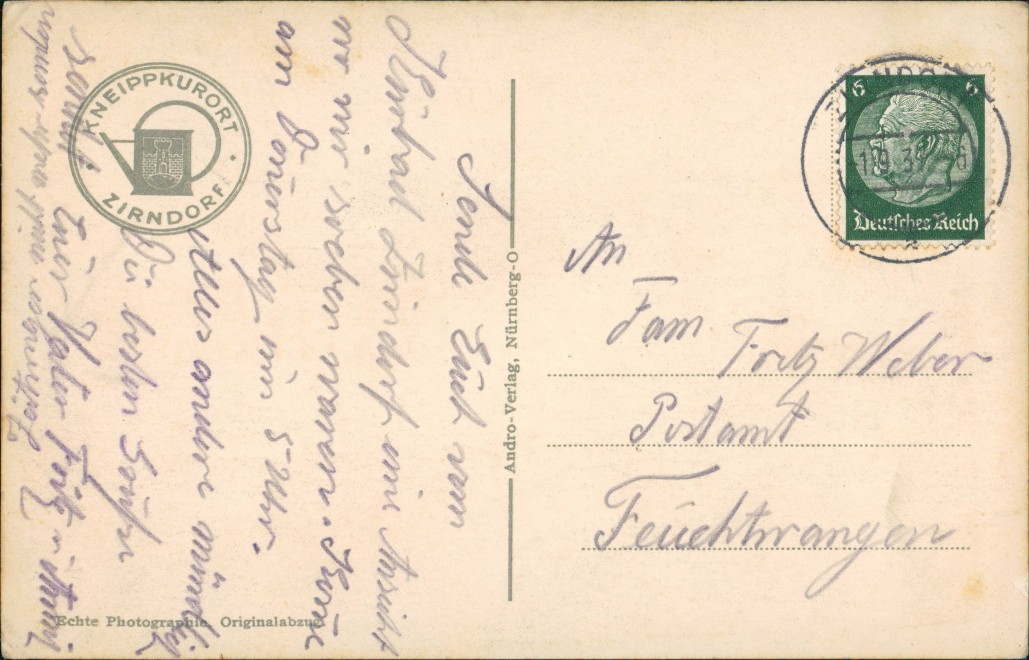 KNEIPPKURORT
ZIRNDORF
Sende Euch vom
Kurbad Zirndorf eine Ansicht
wo wir soeben waren. Komme
am Donnerstag um 5 Uhr.
Alles andere mündlich
Die besten Grüße
sendet
Euer Vater Fritz u.
Echte Photographie, Originalabzug
Andro-Verlag, Nürnberg-O
6 6
Deutsches Reich
An
Fam. Fritz Weber
Postamt
Feuchtwangen